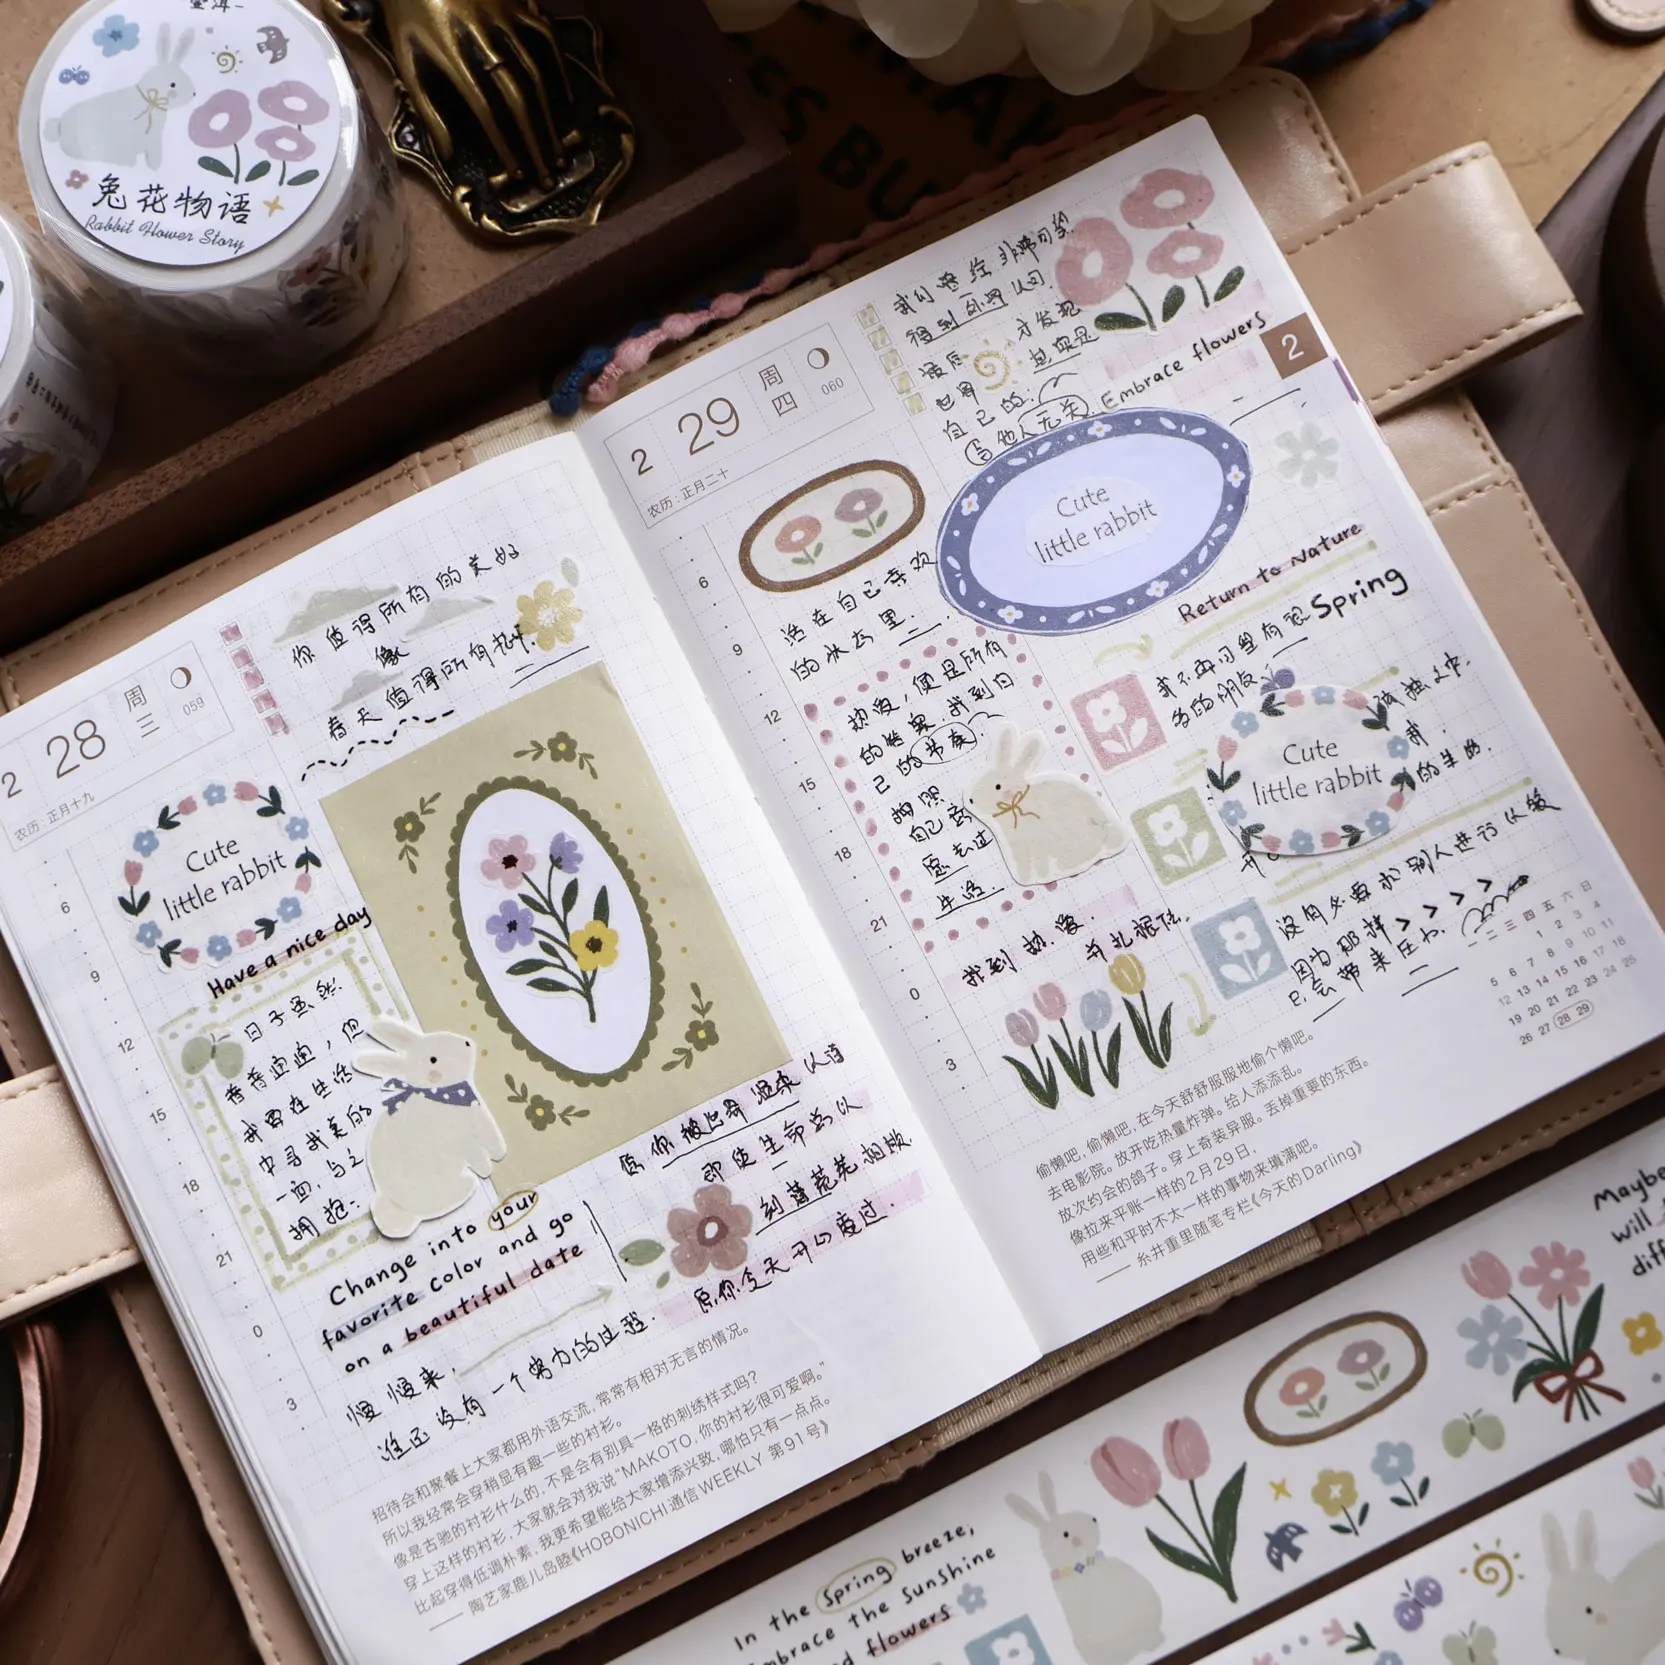 兔花物语
Rabbit Flower Story
2 28 周三 059
农历:正月十九
你值得所有的美好
像
春天值得所有
Cute
little rabbit
Have a nice day
日子虽然
普普通通,但
我要在生活
中寻找美的
一面,与之
拥抱:
Change into your
favorite color and go
on a beautiful date
愿你被世界温柔以待
即使生命总以
刻薄荒芜相欺
愿你今天开心度过.
慢慢来,
谁还没有一个努力的过程.
6
9
12
15
18
21
0
3
招待会和聚餐上大家都用外语交流,常常有相对无言的情况。
所以我经常会穿稍显有趣一些的衬衫。
像是古驰的衬衫什么的,不是会有别具一格的刺绣样式吗?
穿上这样的衬衫,大家就会对我说“MAKOTO,你的衬衫很可爱啊。”
比起穿得低调朴素,我更希望能给大家增添兴致,哪怕只有一点点。
——陶艺家鹿儿岛睦《HOBONICHI通信WEEKLY 第91号》
2 29 周四 060
农历:正月二十
我们曾经非常
得到外界认可.
最后 才发现
世界 其实是
自己的.
与他人无关.
Embrace flowers
2
Cute
little rabbit
活在自己喜欢
的水云里.
Return to Nature
Spring
热爱,便是所有
的答案.找到自
己的节奏.
按照
自己意
愿去过
生活.
找到热爱.
并扎根住.
我不再习
Cute
little rabbit
没有必要和别人进行比较
因为那样>>>>
只会带来压力.
6
9
12
15
18
21
0
3
一 二 三 四 五 六 日
1 2 3 4
5 6 7 8 9 10 11
12 13 14 15 16 17 18
19 20 21 22 23 24 25
26 27 28 29
偷懒吧,偷懒吧,在今天舒舒服服地偷个懒吧。
去电影院。放开吃热量炸弹。给人添添乱。
放次约会的鸽子。穿上奇装异服。丢掉重要的东西。
像拉来平账一样的2月29日,
用些和平时不太一样的事物来填满吧。
——糸井重里随笔专栏《今天的Darling》
Maybe
will
In the Spring breeze,
embrace the sunshine
flowers